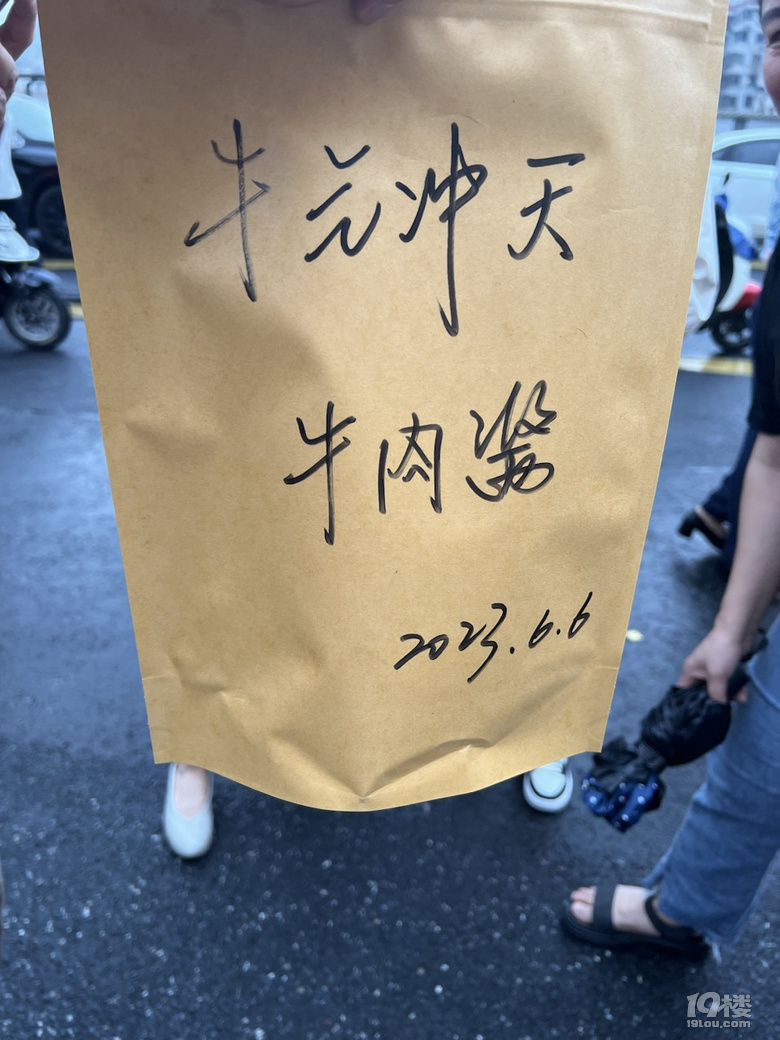 牛气冲天
牛肉酱
2023.6.6
19楼
19lou.com